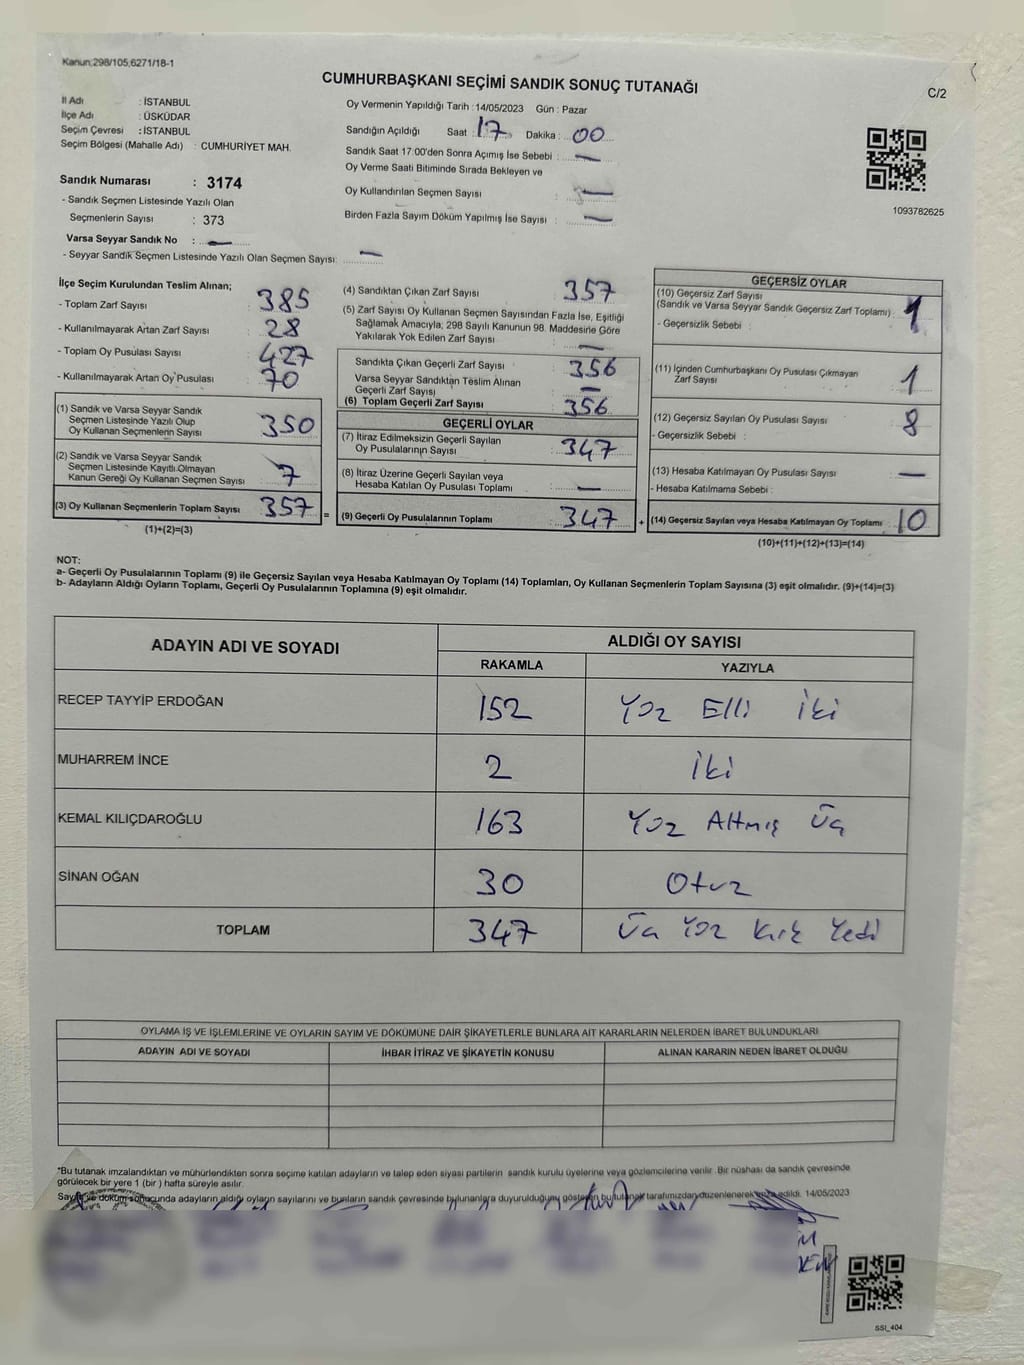 Kanun;298/105,6271/18-1
CUMHURBAŞKANI SEÇİMİ SANDIK SONUÇ TUTANAĞI
C/2
İl Adı : İSTANBUL
İlçe Adı : ÜSKÜDAR
Seçim Çevresi : İSTANBUL
Seçim Bölgesi (Mahalle Adı) : CUMHURİYET MAH.
Sandık Numarası : 3174
- Sandık Seçmen Listesinde Yazılı Olan
Seçmenlerin Sayısı : 373
Varsa Seyyar Sandık No : —
- Seyyar Sandık Seçmen Listesinde Yazılı Olan Seçmen Sayısı: —
Oy Vermenin Yapıldığı Tarih : 14/05/2023 Gün : Pazar
Sandığın Açıldığı Saat : 17 Dakika : 00
Sandık Saat 17:00'den Sonra Açımış İse Sebebi : —
Oy Verme Saati Bitiminde Sırada Bekleyen ve
Oy Kullandırılan Seçmen Sayısı : —
Birden Fazla Sayım Döküm Yapılmış İse Sayısı : —
1093782625
İlçe Seçim Kurulundan Teslim Alınan;
- Toplam Zarf Sayısı : 385
- Kullanılmayarak Artan Zarf Sayısı : 28
- Toplam Oy Pusulası Sayısı : 427
- Kullanılmayarak Artan Oy Pusulası : 70
(1) Sandık ve Varsa Seyyar Sandık
Seçmen Listesinde Yazılı Olup
Oy Kullanan Seçmenlerin Sayısı : 350
(2) Sandık ve Varsa Seyyar Sandık
Seçmen Listesinde Kayıtlı Olmayan
Kanun Gereği Oy Kullanan Seçmen Sayısı : 7
(3) Oy Kullanan Seçmenlerin Toplam Sayısı : 357 =
(1)+(2)=(3)
(4) Sandıktan Çıkan Zarf Sayısı : 357
(5) Zarf Sayısı Oy Kullanan Seçmen Sayısından Fazla İse, Eşitliği
Sağlamak Amacıyla; 298 Sayılı Kanunun 98. Maddesine Göre
Yakılarak Yok Edilen Zarf Sayısı : —
Sandıkta Çıkan Geçerli Zarf Sayısı : 356
Varsa Seyyar Sandıktan Teslim Alınan
Geçerli Zarf Sayısı : —
(6) Toplam Geçerli Zarf Sayısı : 356
GEÇERLİ OYLAR
(7) İtiraz Edilmeksizin Geçerli Sayılan
Oy Pusulalarının Sayısı : 347
(8) İtiraz Üzerine Geçerli Sayılan veya
Hesaba Katılan Oy Pusulası Toplamı : —
(9) Geçerli Oy Pusulalarının Toplamı : 347 +
GEÇERSİZ OYLAR
(10) Geçersiz Zarf Sayısı
(Sandık ve Varsa Seyyar Sandık Geçersiz Zarf Toplamı) : 1
- Geçersizlik Sebebi :
(11) İçinden Cumhurbaşkanı Oy Pusulası Çıkmayan
Zarf Sayısı : 1
(12) Geçersiz Sayılan Oy Pusulası Sayısı : 8
- Geçersizlik Sebebi :
(13) Hesaba Katılmayan Oy Pusulası Sayısı : —
- Hesaba Katılmama Sebebi :
(14) Geçersiz Sayılan veya Hesaba Katılmayan Oy Toplamı : 10
(10)+(11)+(12)+(13)=(14)
NOT:
a- Geçerli Oy Pusulalarının Toplamı (9) ile Geçersiz Sayılan veya Hesaba Katılmayan Oy Toplamı (14) Toplamları, Oy Kullanan Seçmenlerin Toplam Sayısına (3) eşit olmalıdır. (9)+(14)=(3)
b- Adayların Aldığı Oyların Toplamı, Geçerli Oy Pusulalarının Toplamına (9) eşit olmalıdır.
ADAYIN ADI VE SOYADI ALDIĞI OY SAYISI
RAKAMLA YAZIYLA
RECEP TAYYİP ERDOĞAN 152 Yüz Elli İki
MUHARREM İNCE 2 İki
KEMAL KILIÇDAROĞLU 163 Yüz Altmış Üç
SİNAN OĞAN 30 Otuz
TOPLAM 347 Üç Yüz Kırk Yedi
OYLAMA İŞ VE İŞLEMLERİNE VE OYLARIN SAYIM VE DÖKÜMÜNE DAİR ŞİKAYETLERLE BUNLARA AİT KARARLARIN NELERDEN İBARET BULUNDUKLARI
ADAYIN ADI VE SOYADI İHBAR İTİRAZ VE ŞİKAYETİN KONUSU ALINAN KARARIN NEDEN İBARET OLDUĞU
*Bu tutanak imzalandıktan ve mühürlendikten sonra seçime katılan adayların ve talep eden siyasi partilerin sandık kurulu üyelerine veya gözlemcilerine verilir. Bir nüshası da sandık çevresinde
görülecek bir yere 1 (bir ) hafta süreyle asılır.
Sayım ve döküm sonucunda adayların aldığı oyların sayılarını ve bunların sandık çevresinde bulunanlara duyurulduğunu gösteren bu tutanak tarafımızdan düzenlenerek imza edildi. 14/05/2023
SSI_404